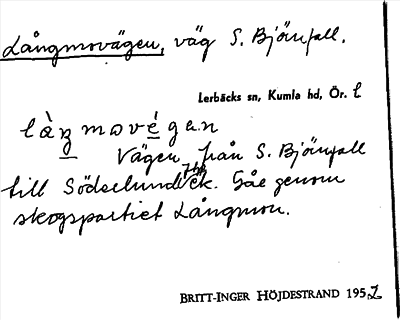 Långmovägen, väg S. Björnfall.
Lerbäcks sn, Kumla hd, Ör. l
Vägen från S. Björnfall
till Södselund ek. Går genom
skogspartiet Långmon.
BRITT-INGER HÖJDESTRAND 1952